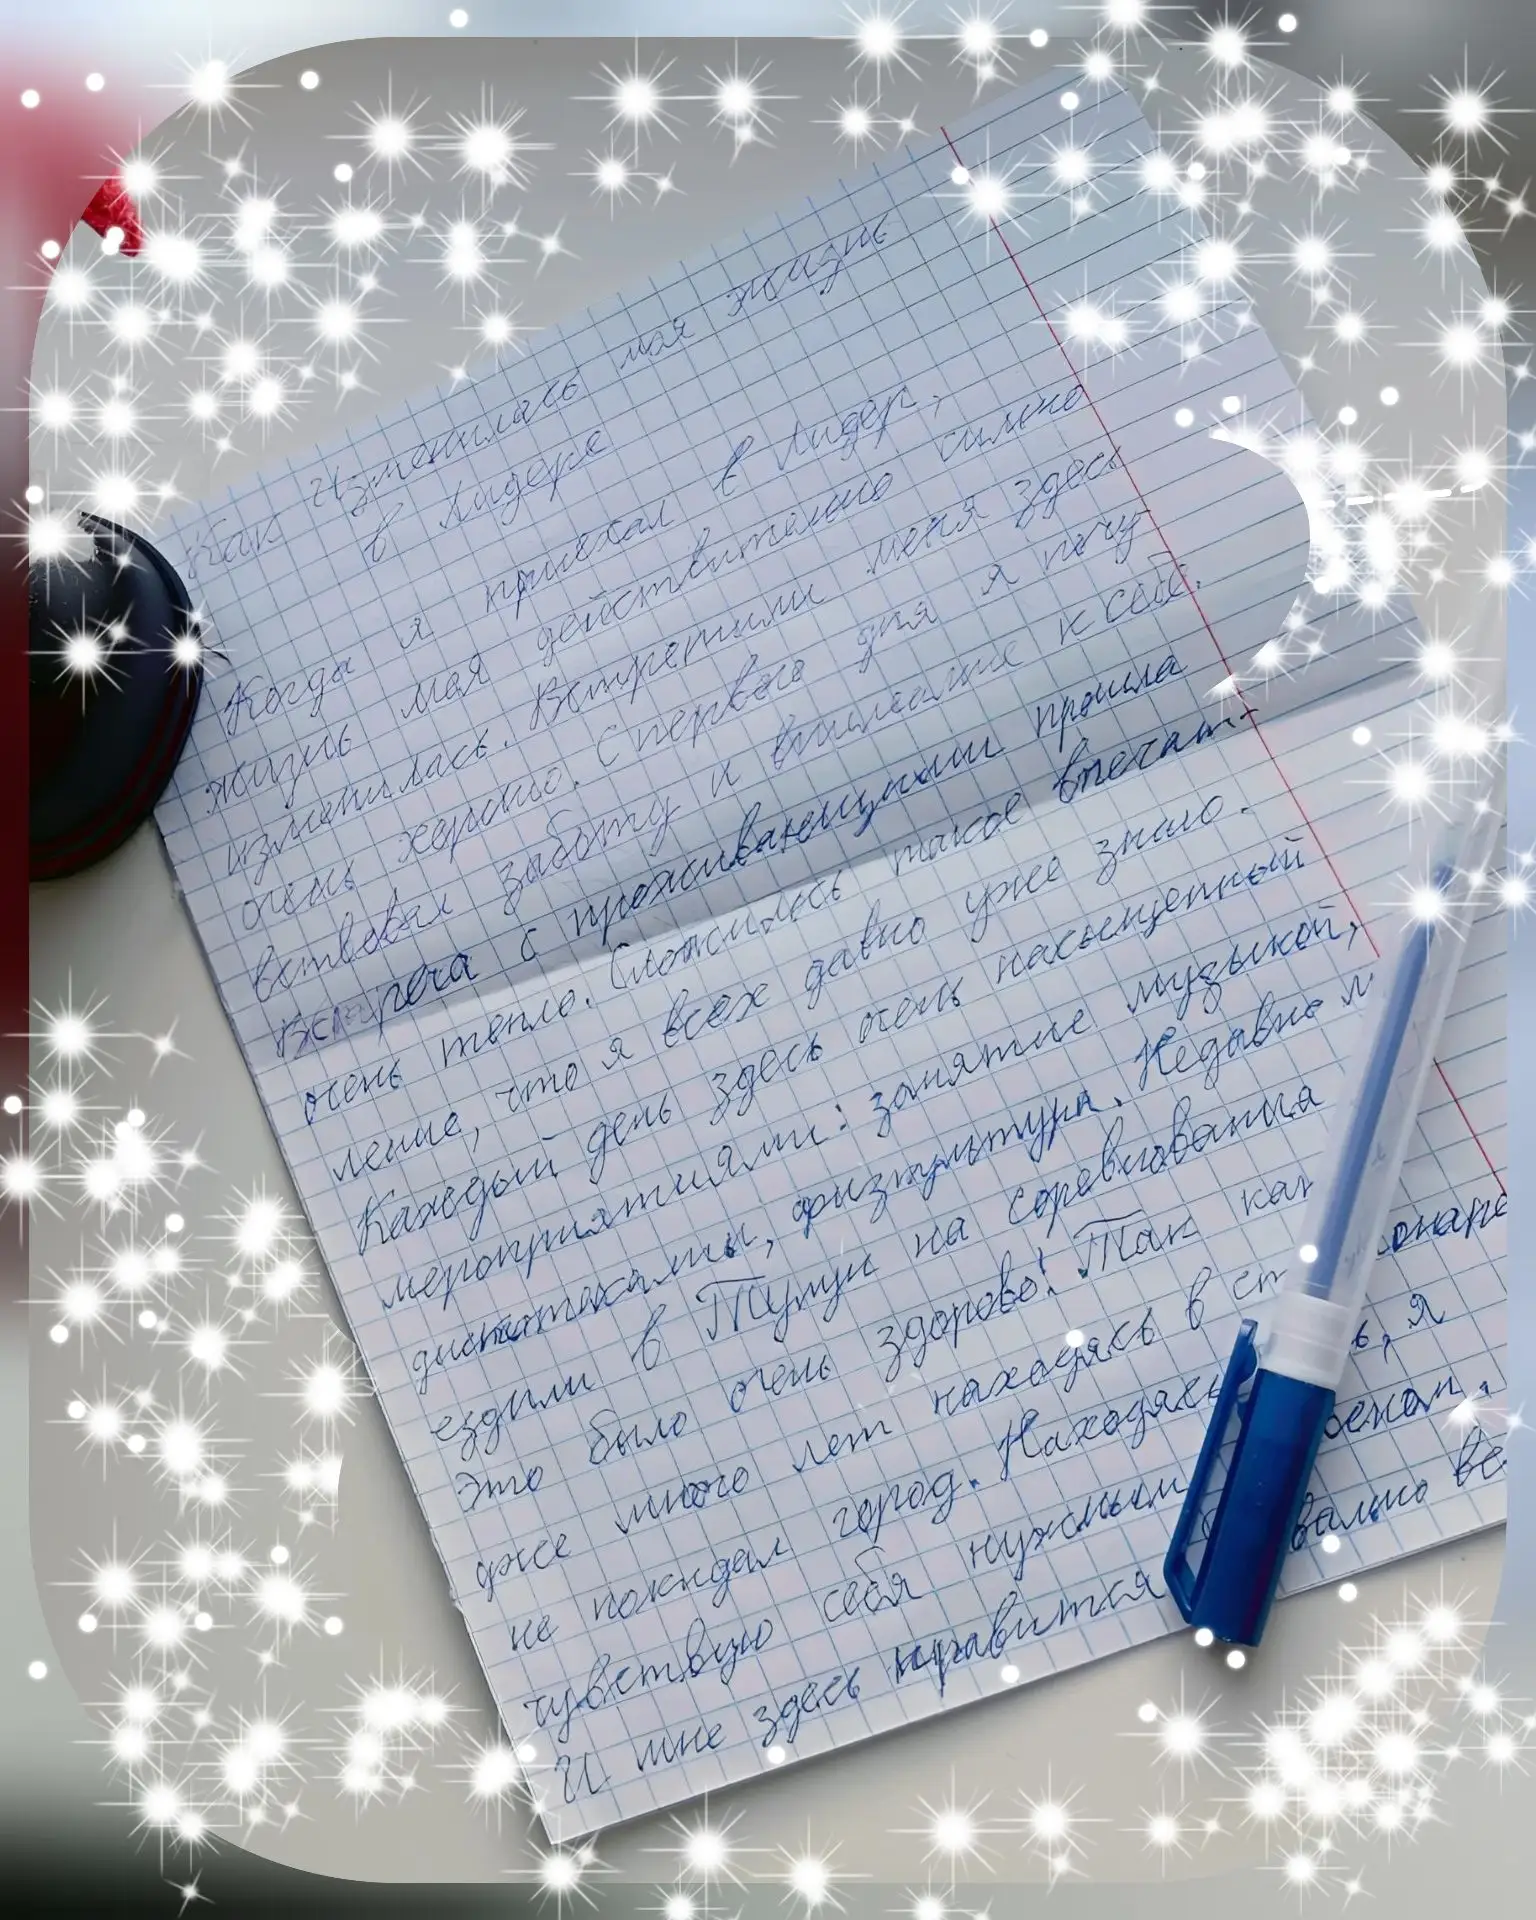 Как изменилась моя жизнь
в Лидере
Когда я приехал в Лидер,
жизнь моя действительно сильно
изменилась. Встретили меня здесь
очень хорошо. С первого дня я почу
вствовал заботу и внимание к себе.
Встреча с проживающими прошла
очень тепло. Сложилось такое впечат-
ление, что я всех давно уже знаю.
Каждый день здесь очень насыщенный
мероприятиями: занятие музыкой,
дискотеками, физкультура. Недавно м
ездили в Тулун на соревнования
Это было очень здорово! Так как
уже много лет находясь в ст онаре
не покидал город. Находясь ь, я
чувствую себя нужным овеком.
И мне здесь нравится вально вс